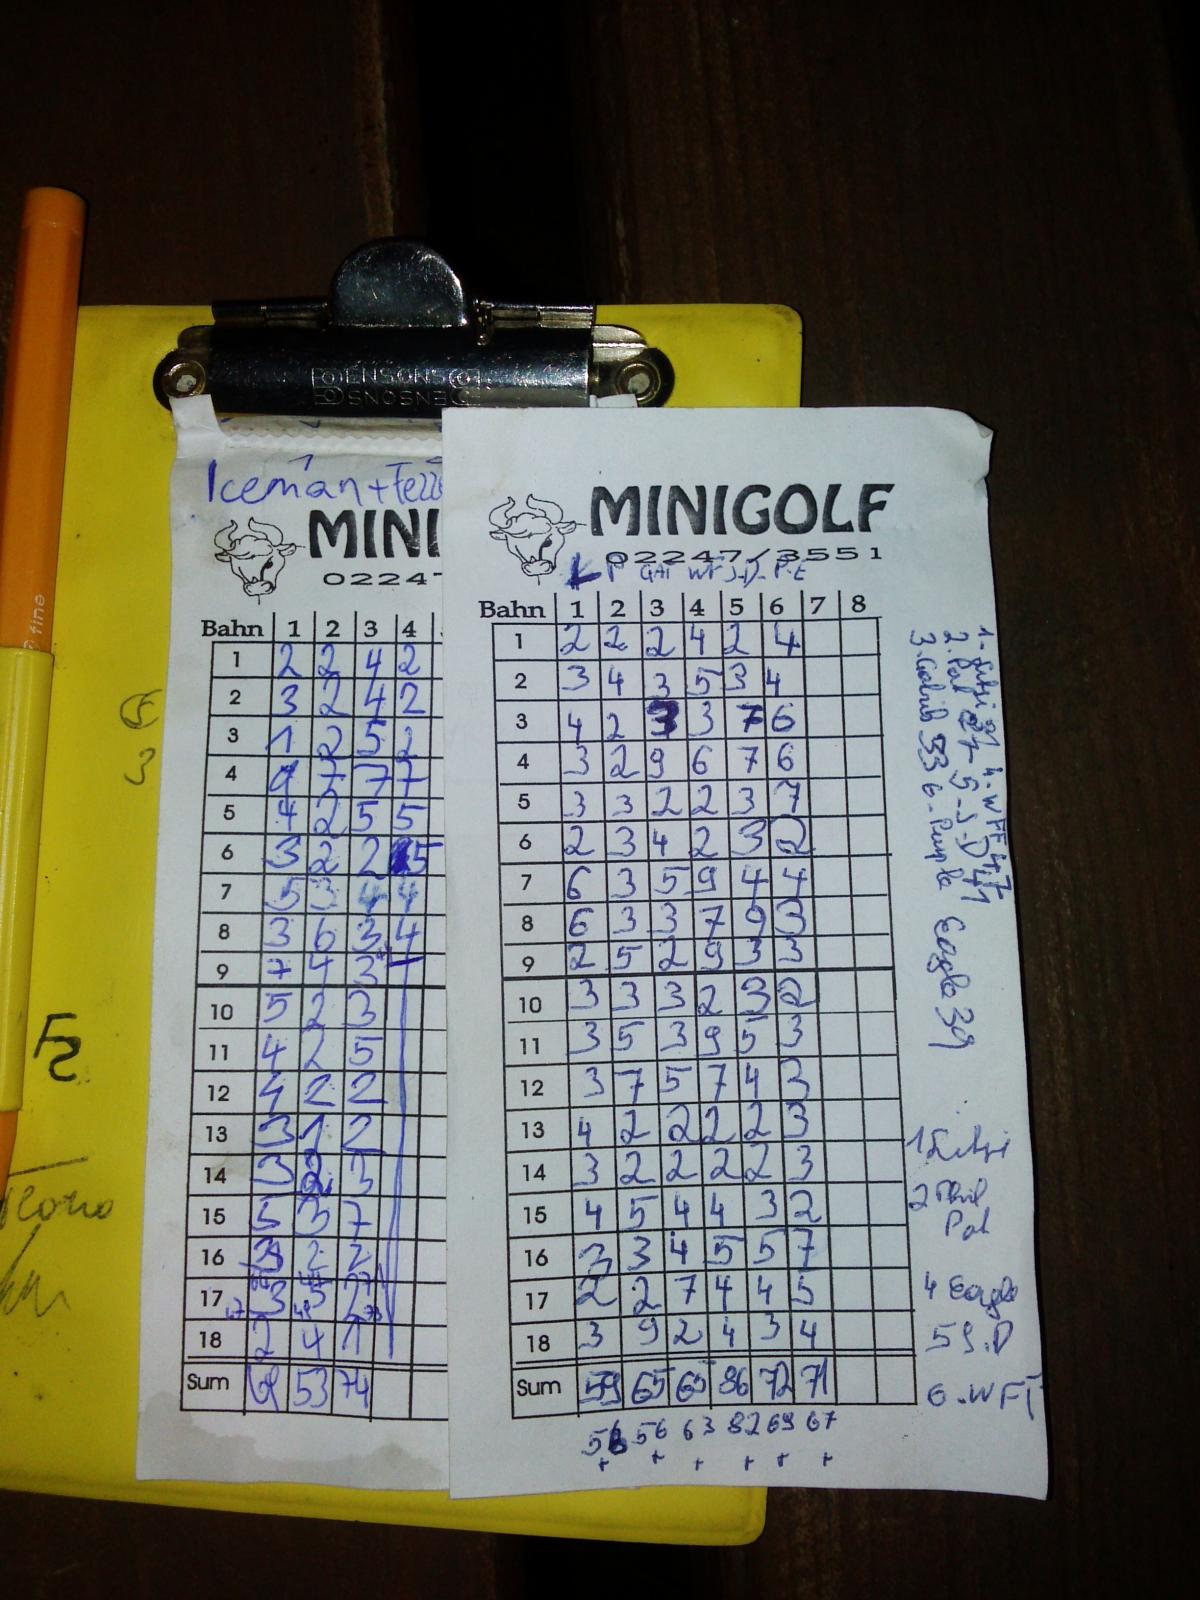 fine
BENSONS
Iceman + Fezz
MINI
0224
Bahn 1 2 3 4
1 2 2 4 2
2 3 2 4 2
3 1 2 5 2
4 7 7
5 4 2 5 5
6 3 2 2 5
7 5 3 4 4
8 3 6 3 4
9 7 4 3
10 5 2 3
11 4 2 5
12 4 2 2
13 3 1 2
14 3 2 3
15 5 3 7
16 2 2
17 3 5 2
18 2 4 1
Sum 53 74
MINIGOLF
02247/3551
L P GAI WF J-D P-E
Bahn 1 2 3 4 5 6 7 8
1 2 2 2 4 2 4
2 3 4 3 5 3 4
3 4 2 3 3 7 6
4 3 2 9 6 7 6
5 3 3 2 2 3 7
6 2 3 4 2 3 2
7 6 3 5 9 4 4
8 6 3 3 7 9 3
9 2 5 2 9 3 3
10 3 3 3 2 3 2
11 3 5 3 9 5 3
12 3 7 5 7 4 3
13 4 2 2 2 2 3
14 3 2 2 2 2 3
15 4 5 4 4 3 2
16 3 3 4 5 5 7
17 2 2 7 4 4 5
18 3 9 2 4 3 4
Sum 59 65 65 86 72 71
56 56 63 82 69 67
+ + + + + +
1.
2.
3. 33 6-Purple Eagle 39
1
2 Phil
4 Eagle
5 J.D
6-WFT